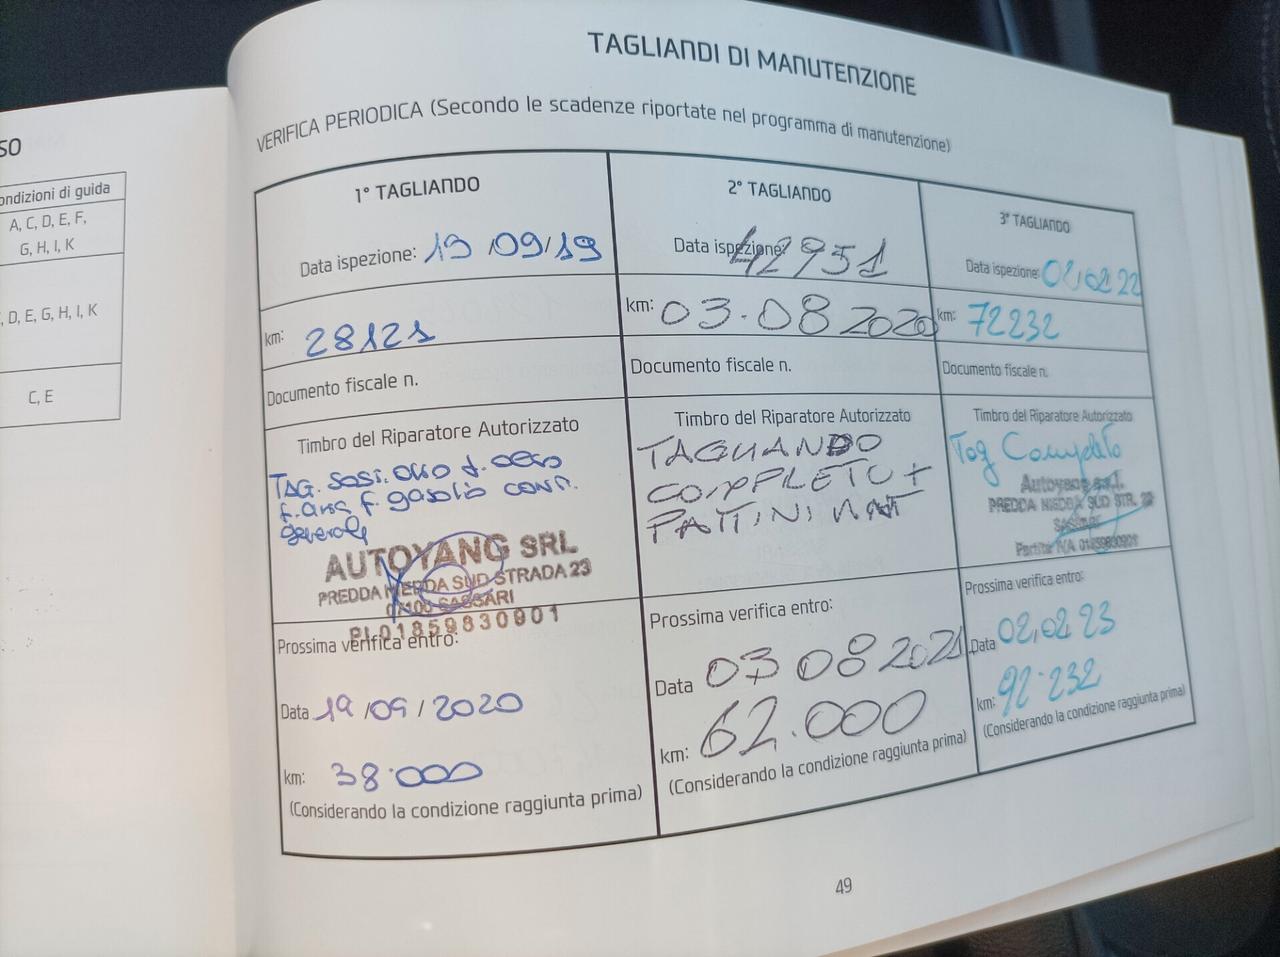 SO
ondizioni di guida
A, C, D, E, F,
G, H, I, K
, D, E, G, H, I, K
C, E
TAGLIANDI DI MANUTENZIONE
VERIFICA PERIODICA (Secondo le scadenze riportate nel programma di manutenzione)
1° TAGLIANDO
Data ispezione: 19/09/19
km: 28121
Documento fiscale n.
Timbro del Riparatore Autorizzato
TAG. SOST. OLIO f. OLIO
f. aria f. gasolio CONT.
generale
AUTOYANG SRL
PREDDA NIEDDA SUD STRADA 23
07100 SASSARI
P.I. 01859830901
Prossima verifica entro:
Data 19/09/2020
km: 38.000
(Considerando la condizione raggiunta prima)
2° TAGLIANDO
Data ispezione: 42951
km: 03.08 2020
Documento fiscale n.
Timbro del Riparatore Autorizzato
TAGLIANDO
COMPLETO +
PATTINI
Prossima verifica entro:
Data 03 08 2021
km: 62.000
(Considerando la condizione raggiunta prima)
3° TAGLIANDO
Data ispezione: 02,02 22
km: 72232
Documento fiscale n.
Timbro del Riparatore Autorizzato
Tag Completo
Autoyang s.r.l.
PREDDA NIEDDA SUD STR. 23
SASSARI
Partita IVA 01859830901
Prossima verifica entro:
Data 02,02 23
km: 92.232
(Considerando la condizione raggiunta prima)
49